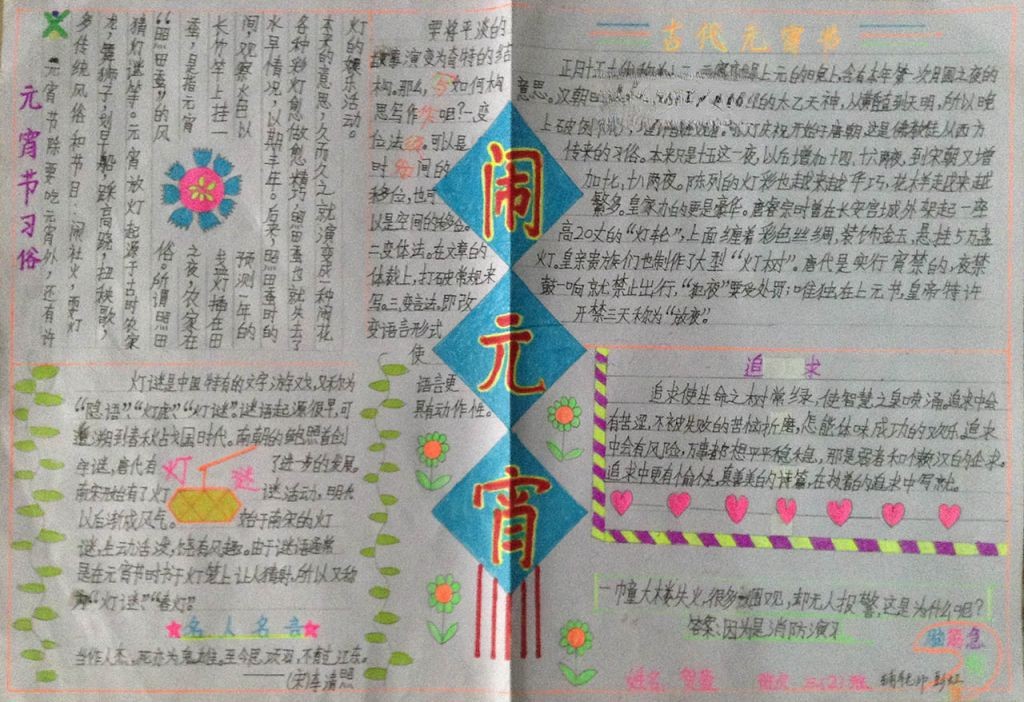 元宵节习俗
元宵节除要吃元宵外，还有许
多传统风俗和节目：闹社火，耍灯
龙，舞狮子，划旱船，踩高跷，扭秧歌，
猜灯谜等。元宵放灯起源于古时农家
"照田蚕"的风俗。所谓照田
蚕，是指元宵之夜，农家在
长竹竿上挂一盏灯插在田
间，观察火色以预测一年的
水旱情况，以期丰年。后来，照田蚕时的
各种彩灯愈做愈精巧，照田蚕也就失去了
本来的意思，久而久之就演变成一种闹花
灯的娱乐活动。
要将平淡的
故事演变为奇特的结
构。那么，今如何构
思写作呢？一变
位法。可以是
时间的
移位，也可
以是空间的移位。
二变体法。在文章的
体裁上，打破常规来
写。三变言法。即改
变语言形式
使
语言更
具有动作性。
闹元宵
古代元宵节
正月十五
元宵
是上元的晚上，含有本年第一次月圆之夜的
意思。汉朝
的太乙天神，从黄昏到天明，所以晚
上
开始于唐朝，这是佛教徒从西方
传来的习俗。本来只是十五这一夜，以后增加十四、十六两夜，到宋朝又增
加十七，十八两夜。陈列的灯彩也越来越华巧，花木羊走越来越
繁多。皇家办的更是豪华。唐睿宗时曾在长安宫城外架起一座
高20丈的"灯轮"，上面缠着彩色丝绸，装饰金玉，悬挂5万盏
灯。皇亲贵族们也制作了大型"灯树"。唐代是实行宵禁的，夜禁
鼓一响就禁止出行，"犯夜"要受处罚；唯独在上元节，皇帝特许
开禁三天称为"放夜"。
灯谜是中国特有的文字游戏，又称为
"隐语""灯虎""灯谜"。谜语起源很早，可
追溯到春秋战国时代。南朝的鲍照首创
字谜，唐代有了进一步的发展。
灯谜
南宋开始有了灯谜活动，明代
以后渐成风气。始于南宋的灯
谜，生动活泼，饶有风趣。由于谜语通常
是在元宵节时书于灯笼上让人猜射，所以又称
为"灯谜""春灯"。
名人名言
当作人杰。死亦为鬼雄。至今思项羽，不肯过江东。
——(宋)李清照
追求
追求使生命之树常绿，使智慧之泉喷涌。追求中会
有苦涩，不被失败的苦恼折磨，怎能体味成功的欢乐。追求
中会有风险，万事都想平平稳稳，那是弱者和懒汉的企求。
追求中更有愉快，真善美的诗篇，在执着的追求中写就。
一幢大楼失火，很多人围观，却无人报警，这是为什么呢？
答案：因为是消防演习
脑筋急
姓名：贺盈 班级：三(2)班